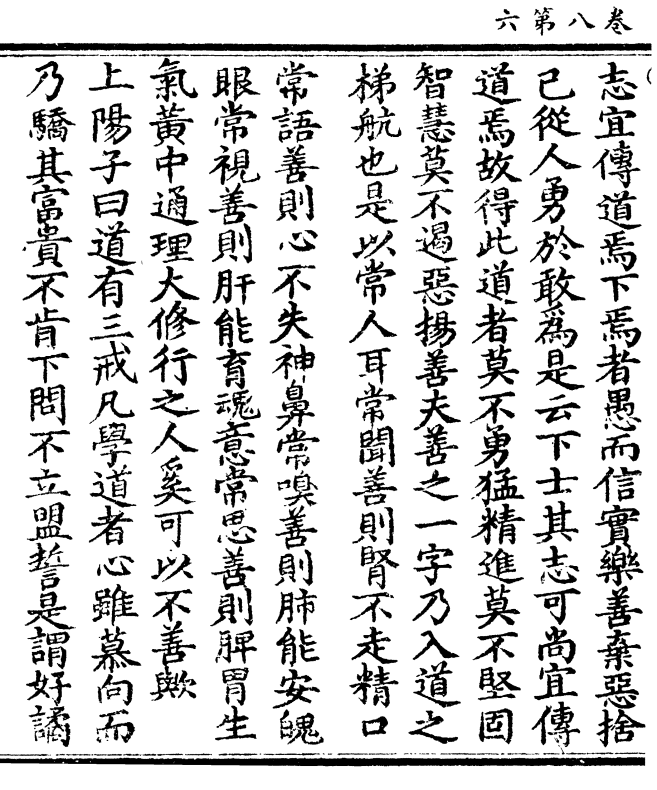 卷八第六
志宜傳道焉下焉者愚而信實樂善棄惡捨
己從人勇於敢為是云下士其志可尚宜傳
道焉故得此道者莫不勇猛精進莫不堅固
智慧莫不遏惡揚善夫善之一字乃入道之
梯航也是以常人耳常聞善則腎不走精口
常語善則心不失神鼻常嗅善則肺能安魄
眼常視善則肝能育魂意常思善則脾胃生
氣黃中通理大修行之人奚可以不善歟
上陽子曰道有三戒凡學道者心雖慕向而
乃驕其富貴不肯下問不立盟誓是謂好譎